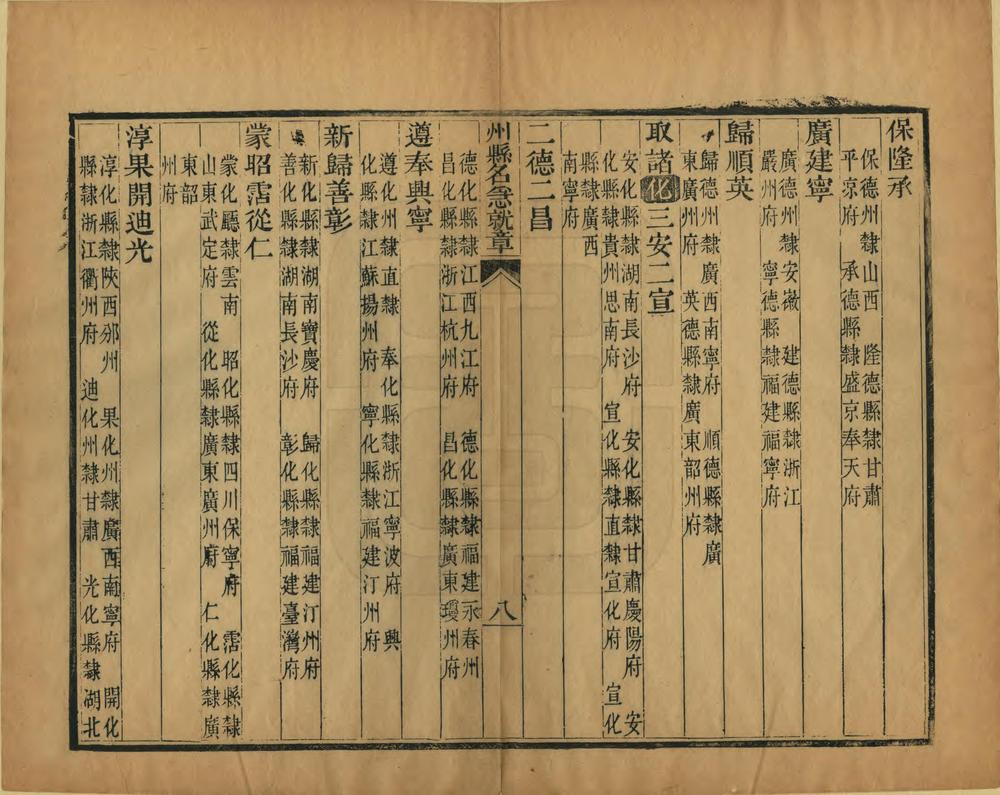 保隆承
保德州隸山西　隆德縣隸甘肅
平凉府　承德縣隸盛京奉天府
廣建寧
廣德州隸安徽　建德縣隸浙江
嚴州府　寧德縣隸福建福寧府
歸順英
歸德州隸廣西南寧府　順德縣隸廣
東廣州府　英德縣隸廣東韶州府
取諸化三安二宣
安化縣隸湖南長沙府　安化縣隸甘肅慶陽府　安
化縣隸貴州思南府　宣化縣隸直隸宣化府　宣化
縣隸廣西
南寧府
二德二昌
州縣名急就章
八
德化縣隸江西九江府　德化縣隸福建永春州
昌化縣隸浙江杭州府　昌化縣隸廣東瓊州府
遵奉興寧
遵化州隸直隸　奉化縣隸浙江寧波府　興
化縣隸江蘇揚州府　寧化縣隸福建汀州府
新歸善彰
新化縣隸湖南寶慶府　歸化縣隸福建汀州府
善化縣隸湖南長沙府　彰化縣隸福建臺灣府
蒙昭霑從仁
蒙化廳隸雲南　昭化縣隸四川保寧府　霑化縣隸
山東武定府　從化縣隸廣東廣州府　仁化縣隸廣
東韶
州府
淳果開迪光
淳化縣隸陝西邠州　果化州隸廣西南寧府　開化
縣隸浙江衢州府　迪化州隸甘肅　光化縣隸湖北